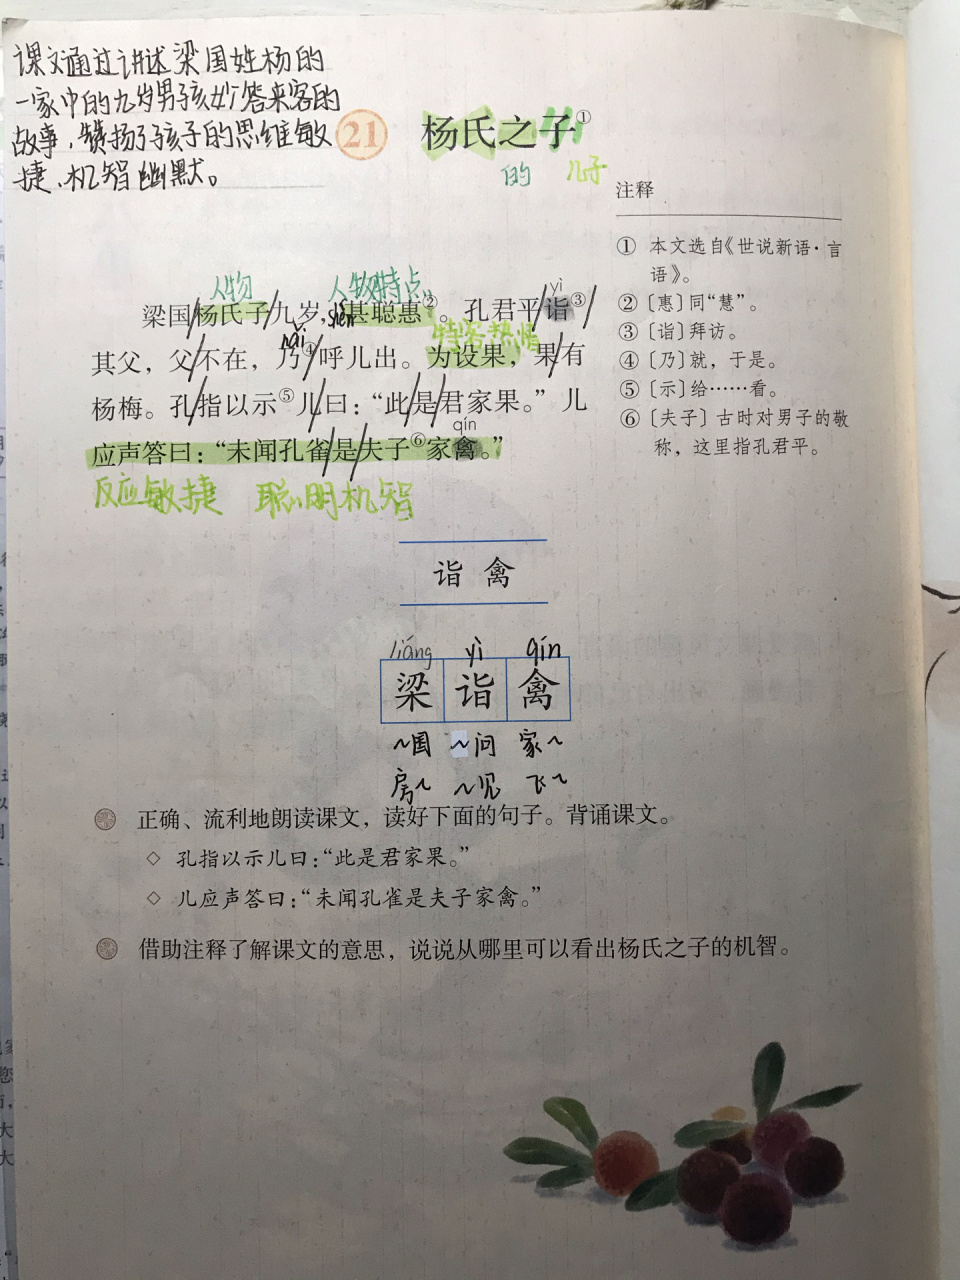 课文通过讲述梁国姓杨的
一家中的九岁男孩妙答来客的
故事,赞扬了孩子的思维敏
捷、机智幽默。
21 杨氏之子①
的 儿子
注释
① 本文选自《世说新语·言
语》。
②〔惠〕同“慧”。
③〔诣〕拜访。
④〔乃〕就,于是。
⑤〔示〕给……看。
⑥〔夫子〕古时对男子的敬
称,这里指孔君平。
人物 人物特点
yì
梁国/杨氏子/九岁,甚聪惠②。孔君平/诣③/
nǎi 待客热情
其父,父/不在,乃④/呼儿出。为设果,果/有
杨梅。孔/指以示⑤儿/曰:“此/是/君家果。”儿
qín
应声答曰:“未闻孔雀/是/夫子⑥家禽。”
反应敏捷 聪明机智
诣 禽
liáng yì qín
梁 诣 禽
~国 ~问 家~
房~ ~见 飞~
正确、流利地朗读课文,读好下面的句子。背诵课文。
◇ 孔指以示儿曰:“此是君家果。”
◇ 儿应声答曰:“未闻孔雀是夫子家禽。”
借助注释了解课文的意思,说说从哪里可以看出杨氏之子的机智。